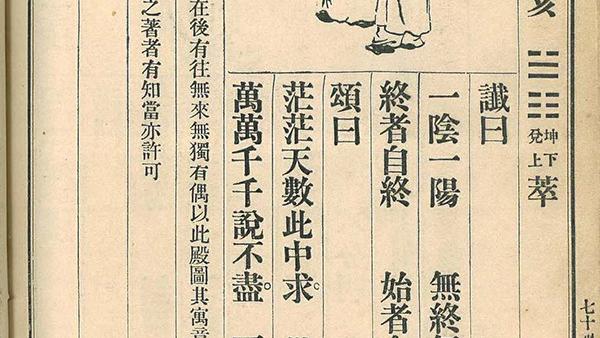 七十
坤下
兌上
萃
讖曰
一陰一陽 無終
終者自終 始者
頌曰
茫茫天數此中求。
萬萬千千說不盡。
在後有往無來無獨有偶以此殿圖其寓意
之著者有知當亦許可